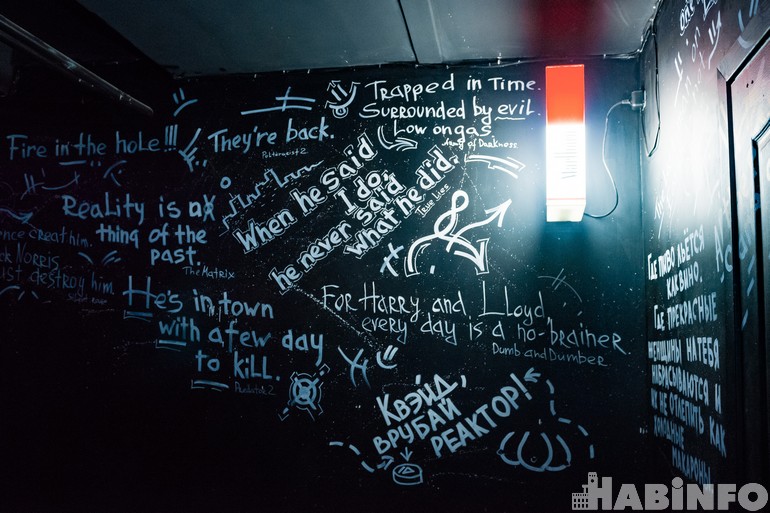 Trapped in Time.
Surrounded by evil.
Low on gas
Army of Darkness
Fire in the hole!!!
They're back.
Poltergeist 2
When he said
I do,
he never said
what he did.
True Lies
Reality is a
thing of the
past.
The Matrix
Norris
destroy him
He's in town
with a few day
to kill.
Predator 2
For Harry and Lloyd
every day is a no-brainer
Dumb and Dumber
Квэйд,
врубай
реактор!
Где пиво льётся
как вино.
Где прекрасные
женщины на тебя
набрасываются и
не отлепить как
макароны
HABINFO